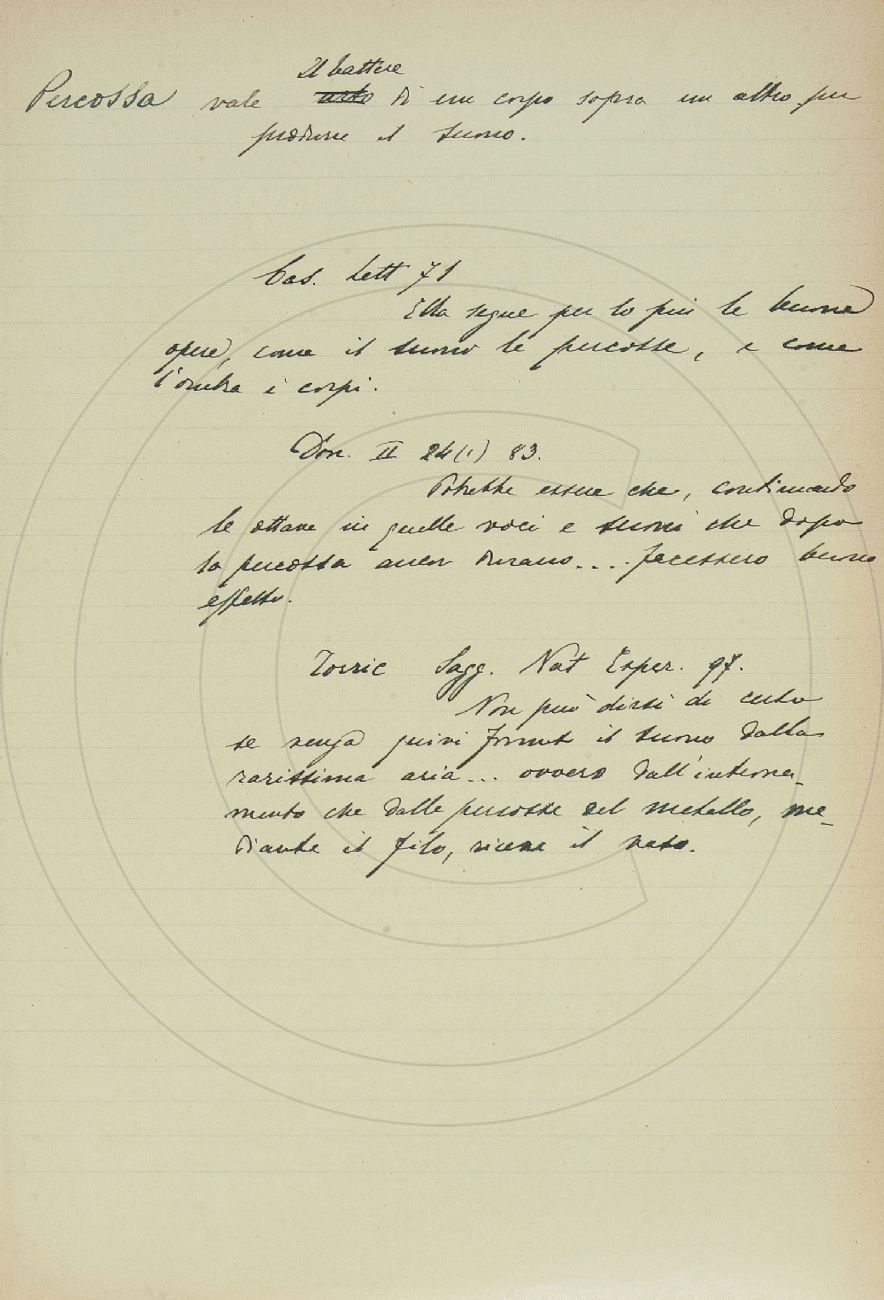 Il battere
Percossa vale urto di un corpo sopra un altro per
produrre il suono.
Cas. Lett 71
Ella segue per lo più le buone
opere, come il suono le percosse, e come
l'ombra i corpi.
Don. II 24(1) 83.
Potrebbe essere che, continuando
le ottave in quelle voci e suoni che dopo
la percossa ancor durano.... facessero buono
effetto.
Torric Sagg. Nat Esper. 97.
Non può dirsi di certo
se venga quivi formato il suono dalla
rarissima aria... ovvero dall'interne-
mento che dalle percosse del metallo, me-
diante il filo, riceve il vaso.